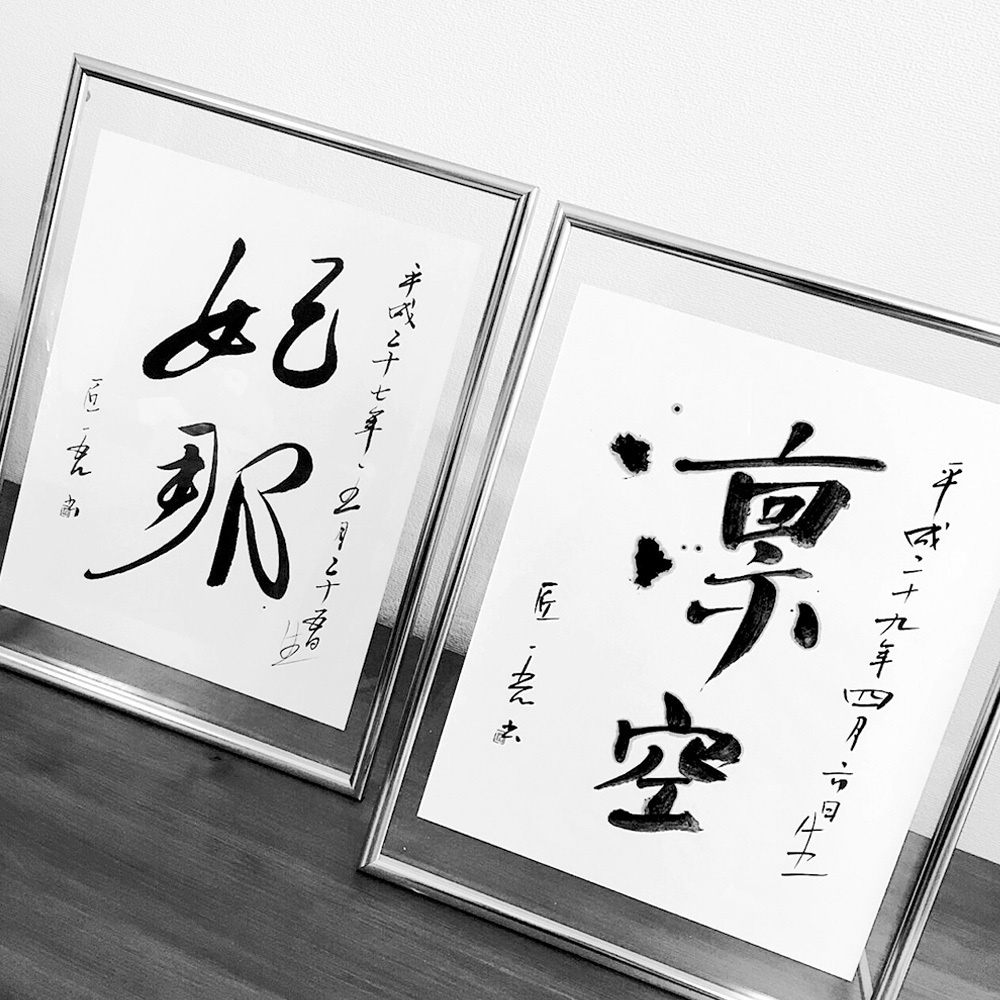 平成二十七年五月二十五日生
妃那
匠一
平成二十九年四月六日生
凛空
匠一